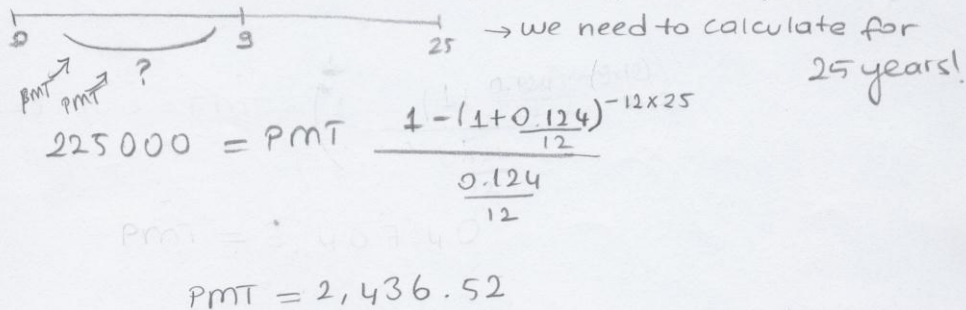 0 9 25 → we need to calculate for
25 years!
PMT PMT ?
225000 = PMT \frac{1-(1+\frac{0.124}{12})^{-12×25}}{\frac{0.124}{12}}
PMT = 2,436.52